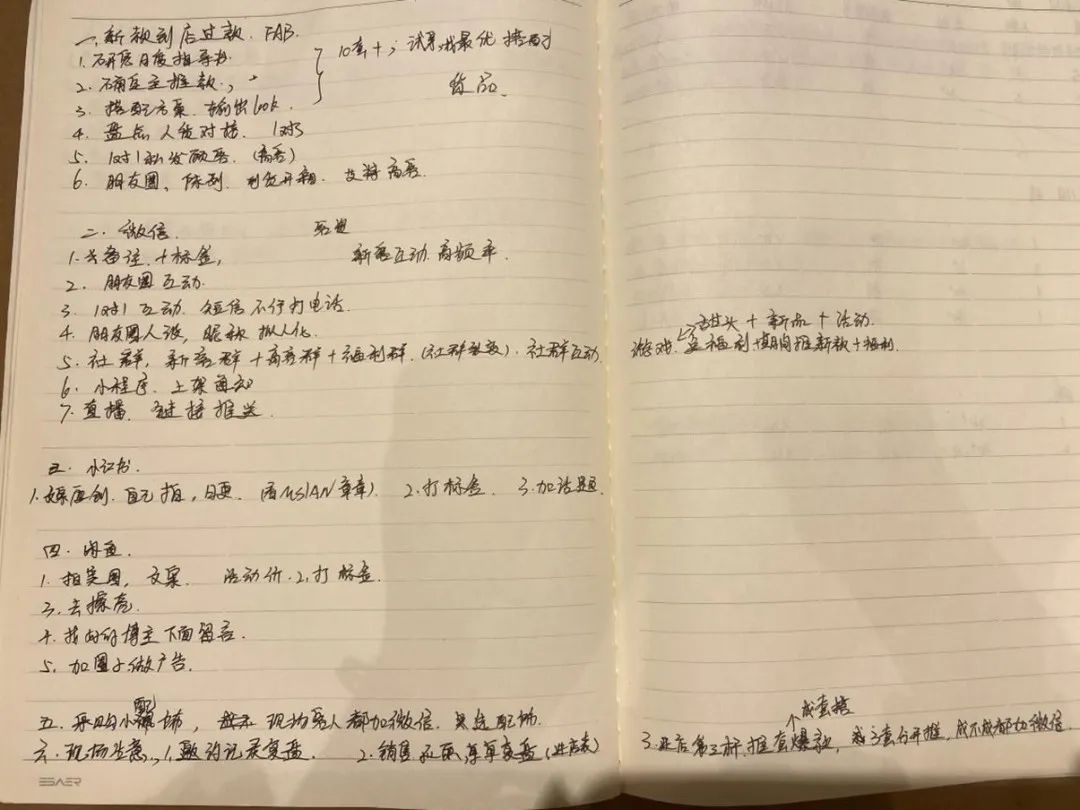 一、新款到店过款 FAB.
1. 研究月度指导书
2. 确定主推款,
3. 搭配方案 输出look.
10套+; 试身找最优搭配
饰品、
4. 盘点 人货对接. 1对3
5. 1对1私发顾客. (高客)
6. 朋友圈、陈列. 到货开箱 艾特高客.
二、微信.
1. 备注 + 标签,
新客互动. 高频率.
2. 朋友圈互动.
3. 1对1互动. 短信不停打电话.
4. 朋友圈人设, 昵称 拟人化.
5. 社群, 新客群 + 高客群 + 福利群. (社群数) 社群互动.
甜头 + 新品 + 活动.
游戏. 福利 期间推新款+福利.
6. 小程序. 上架通知
7. 直播. 链接推送.
三、小红书.
1. 原创. 自己拍, 日更. 2. 打标签. 3. 加话题.
四. 闲鱼.
1. 拍实图, 文案. 活动价. 2. 打标签.
3. 去擦亮.
4. 找好的博主下面留言.
5. 加圈子做广告.
五. 采购小配饰, 现场客人都加微信. 配饰.
六. 现场生意., 1. 邀约记录复盘. 2. 销售 单单复盘 (进店表)
成套搭
3. 进店 推套爆款, 3套分开推, 成不成都加微信.
ESAER